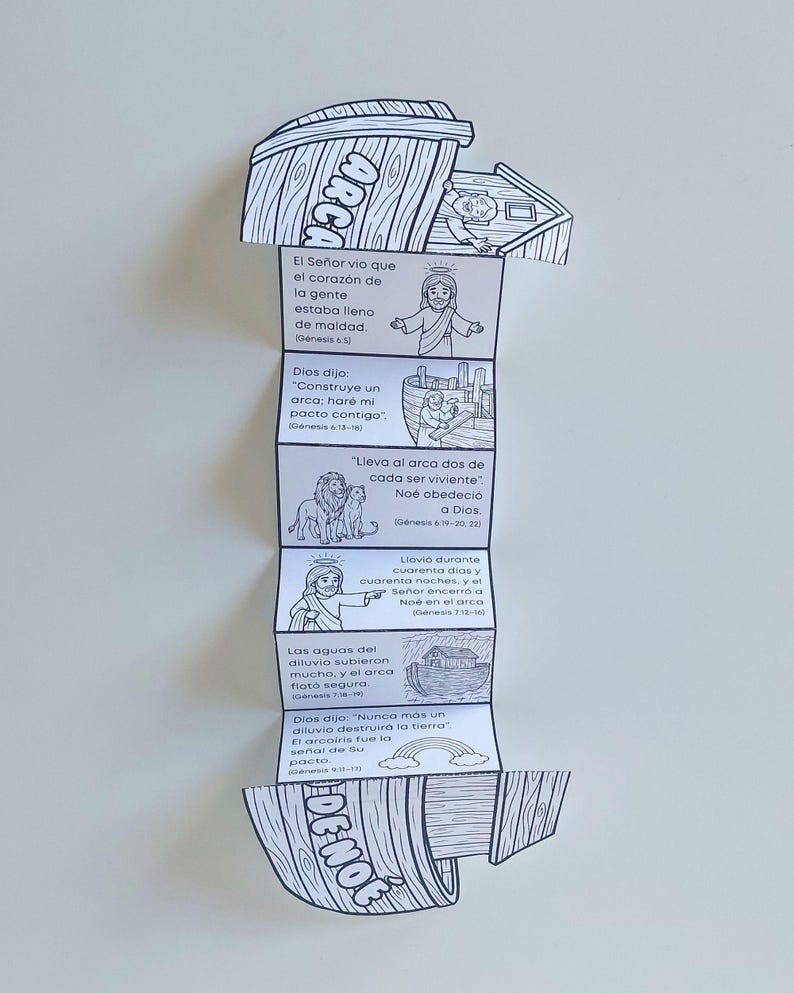 ARCA
El Señor vio que
el corazón de
la gente
estaba lleno
de maldad.
(Génesis 6:5)
Dios dijo:
"Construye un
arca; haré mi
pacto contigo".
(Génesis 6:13–18)
"Lleva al arca dos de
cada ser viviente".
Noé obedeció
a Dios.
(Génesis 6:19–20, 22)
Llovió durante
cuarenta días y
cuarenta noches, y el
Señor encerró a
Noé en el arca
(Génesis 7:12–16)
Las aguas del
diluvio subieron
mucho, y el arca
flotó segura.
(Génesis 7:18–19)
Dios dijo: "Nunca más un
diluvio destruirá la tierra".
El arcoíris fue la
señal de Su
pacto.
(Génesis 9:11–17)
DE NOÉ